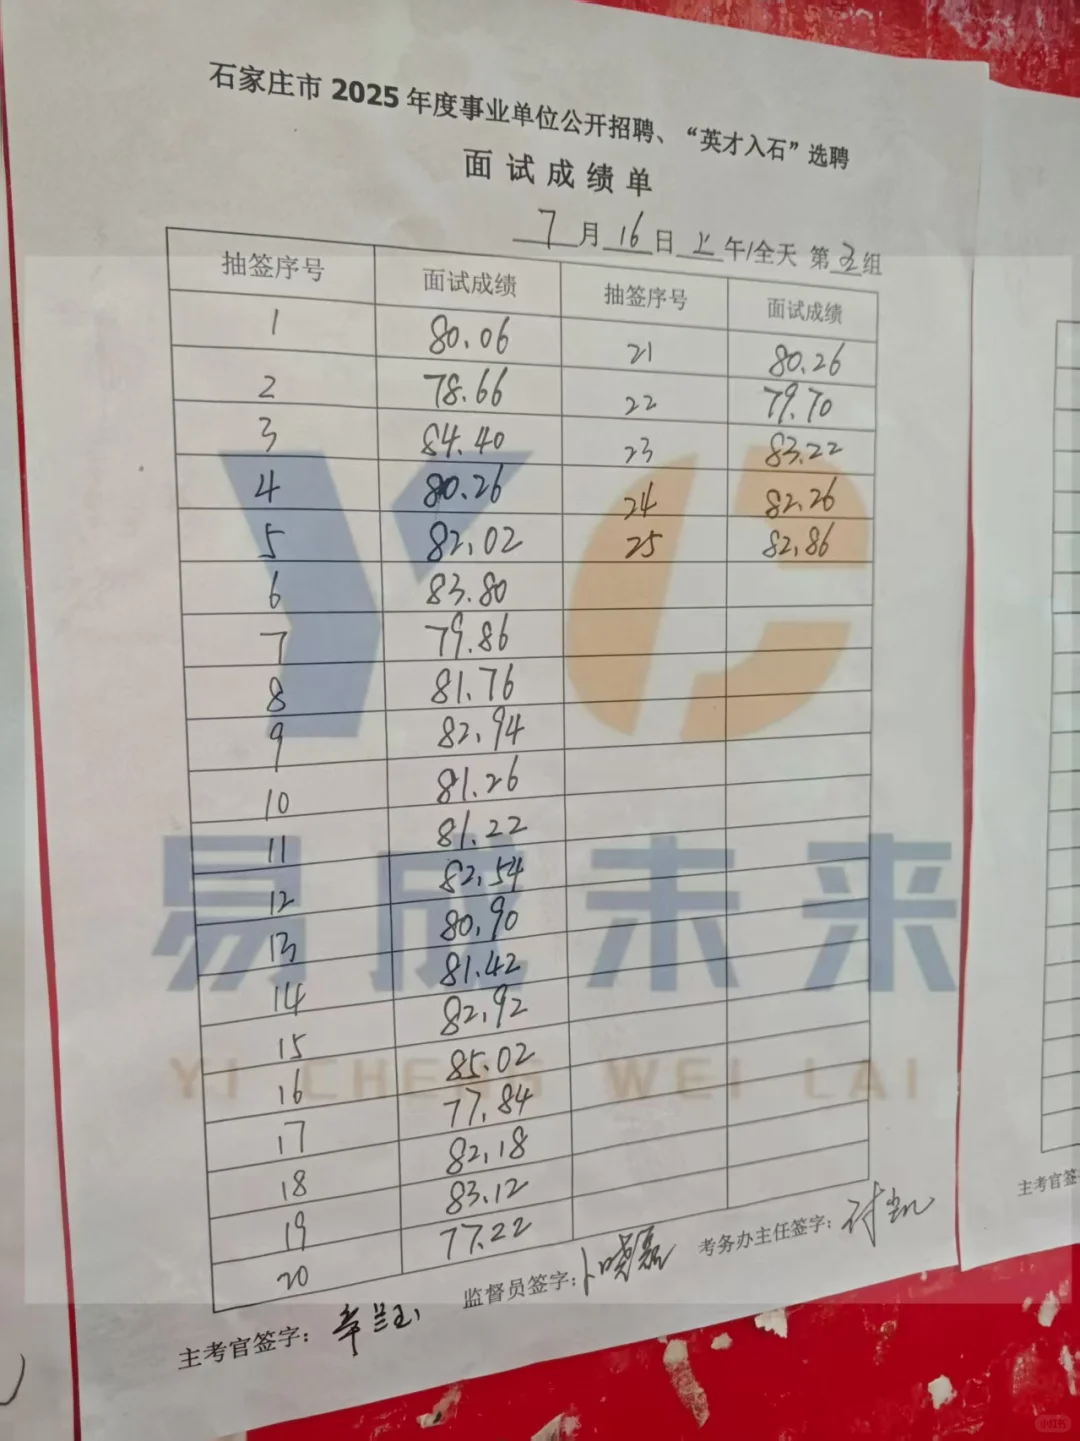 石家庄市 2025 年度事业单位公开招聘、“英才入石”选聘
面试成绩单
7月16日上午/全天 第五组
抽签序号 面试成绩 抽签序号 面试成绩
1 80.06 21 80.26
2 78.66 22 79.70
3 84.40 23 83.22
4 80.26 24 82.26
5 82.02 25 82.86
6 83.80
7 79.86
8 81.76
9 82.94
10 81.26
11 81.22
12 82.54
13 80.90
14 81.42
15 82.92
16 85.02
17 77.84
18 82.18
19 83.12
20 77.22
主考官签字：
监督员签字：
考务办主任签字：
主考官签
YC
易成未来
YI CHENG WEI LAI
小红书